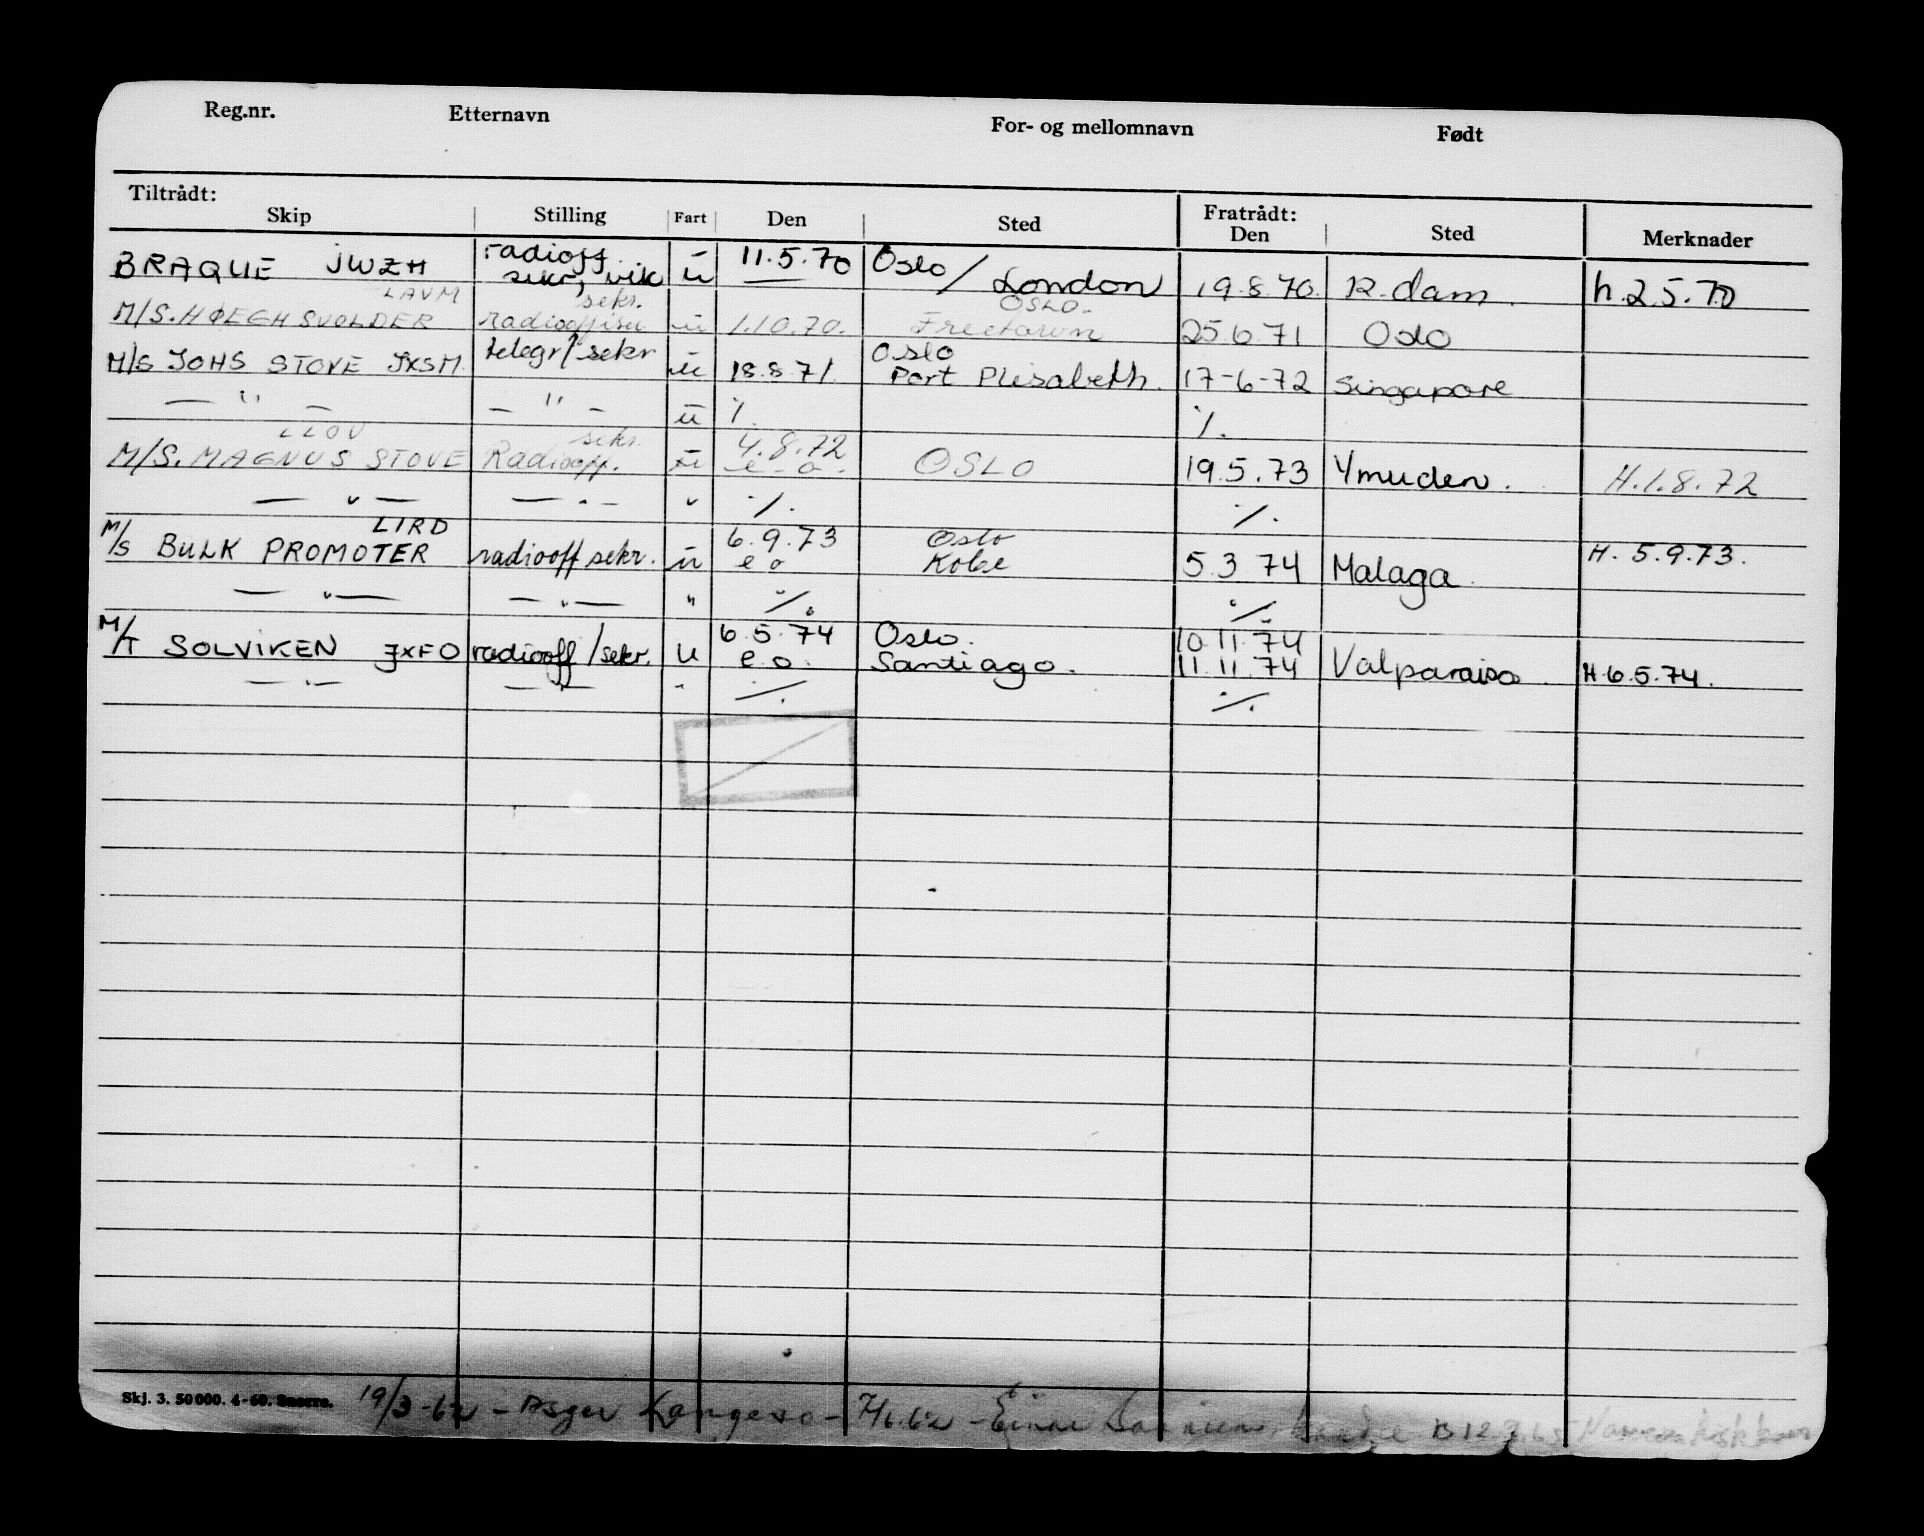 Reg.nr. Etternavn For- og mellomnavn Født
Tiltrådt: Fratrådt:
Skip Stilling Fart Den Sted Den Sted Merknader
BRAQUE JWZH radiooff. sekr, vik ū 11.5.70 Oslo/London 19.8.70. R.dam. h.25.70
LAVM sekr. OSLO.
M/S. HØEGH SVOLDER ū 1.10.70. Freetown 25.6.71 Oslo
M/S JOHS STOVE JXSM telegr/sekr ū 18.8.71. Oslo Port Plisabeth. 17-6-72 Singapore
— " — — " — ū ./. ./.
LLOV sekr. 4.8.72
M/S. MAGNUS STOVE Radiooff. ū e-o. OSLO 19.5.73 Ymuden. H.1.8.72
— " — — " — " ./. ./.
LIRD 6.9.73 Oslo
M/S BULK PROMOTER radiooff sekr. ū e o Kobe 5.3.74 Malaga. H. 5.9.73.
— " — — " — " ./. ./.
6.5.74 Oslo. 10.11.74
M/T SOLVIKEN JXFO radiooff/sekr. u e.o. Santiago. 11.11.74 Valparaiso H.6.5.74.
— " — — " — " ./. ./.
Skj. 3. 50000. 4-60. 19/3-62 - Asger - 7/6.62 - Einar